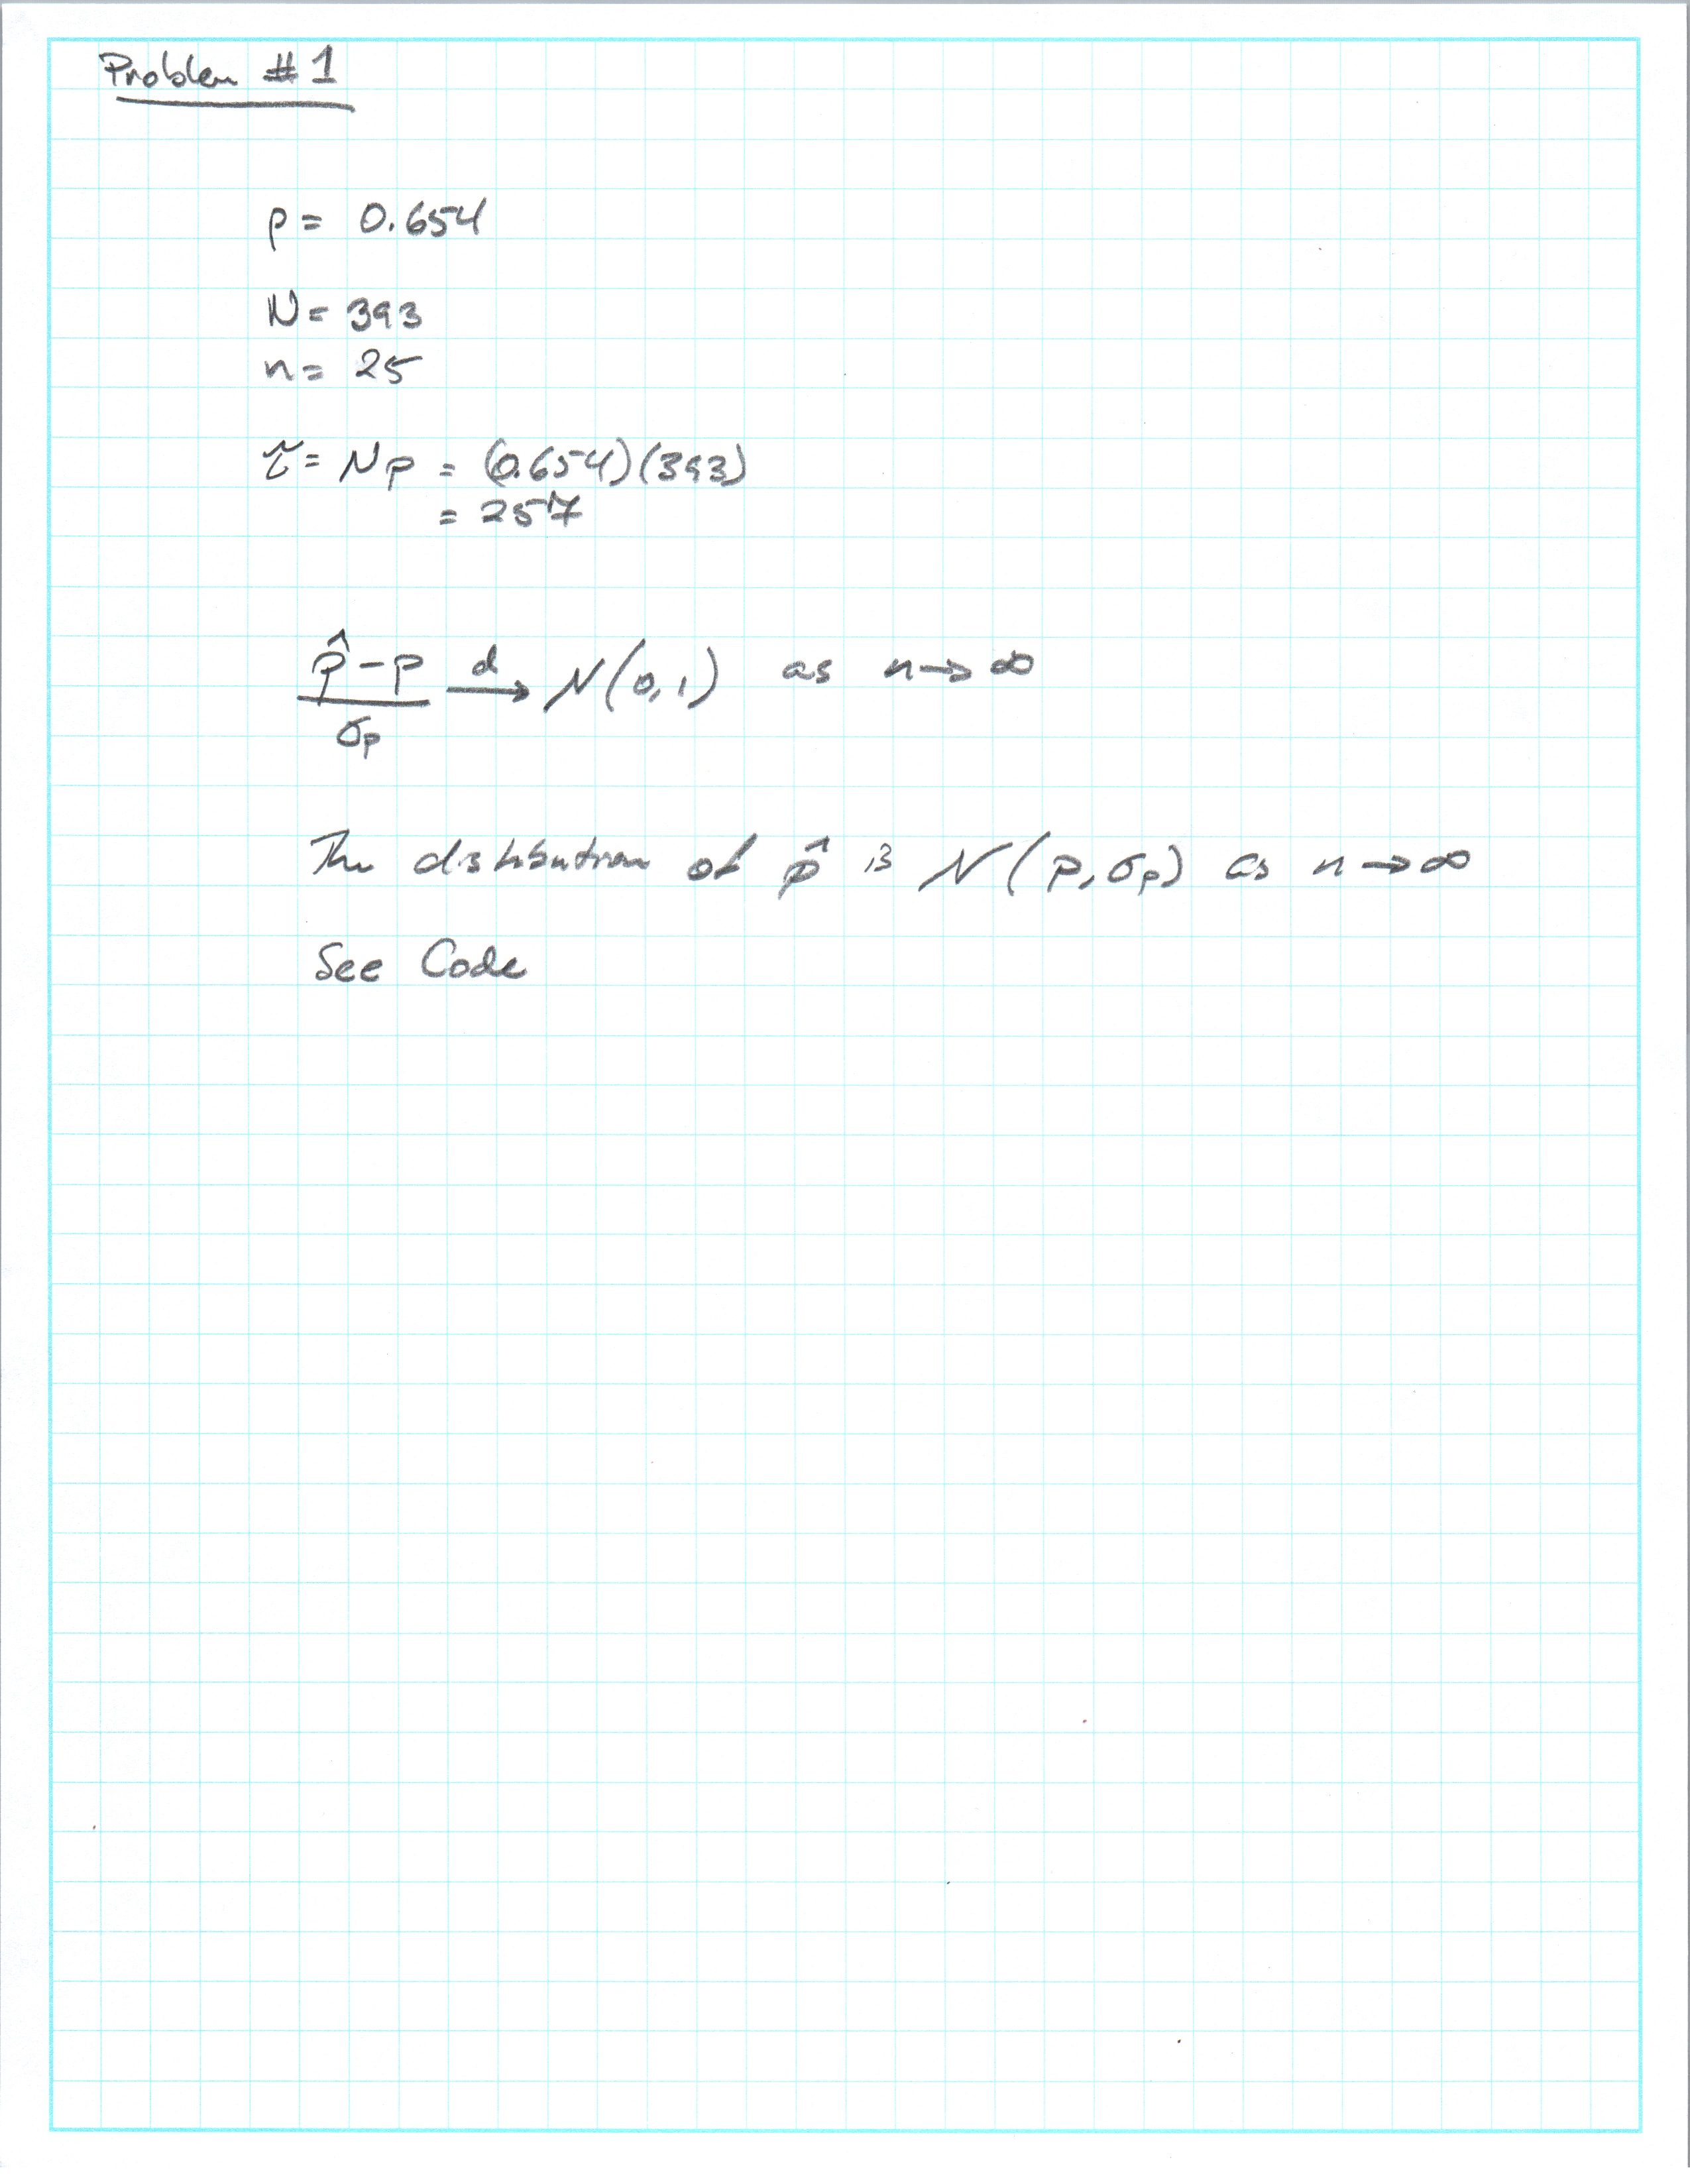 Problem #1
p = 0.654
N = 393
n = 25
τ = Np = (0.654)(393)
= 257
p̂ - p / σp →d N(0,1) as n → ∞
The distribution of p̂ is N(p, σp) as n → ∞
See Code